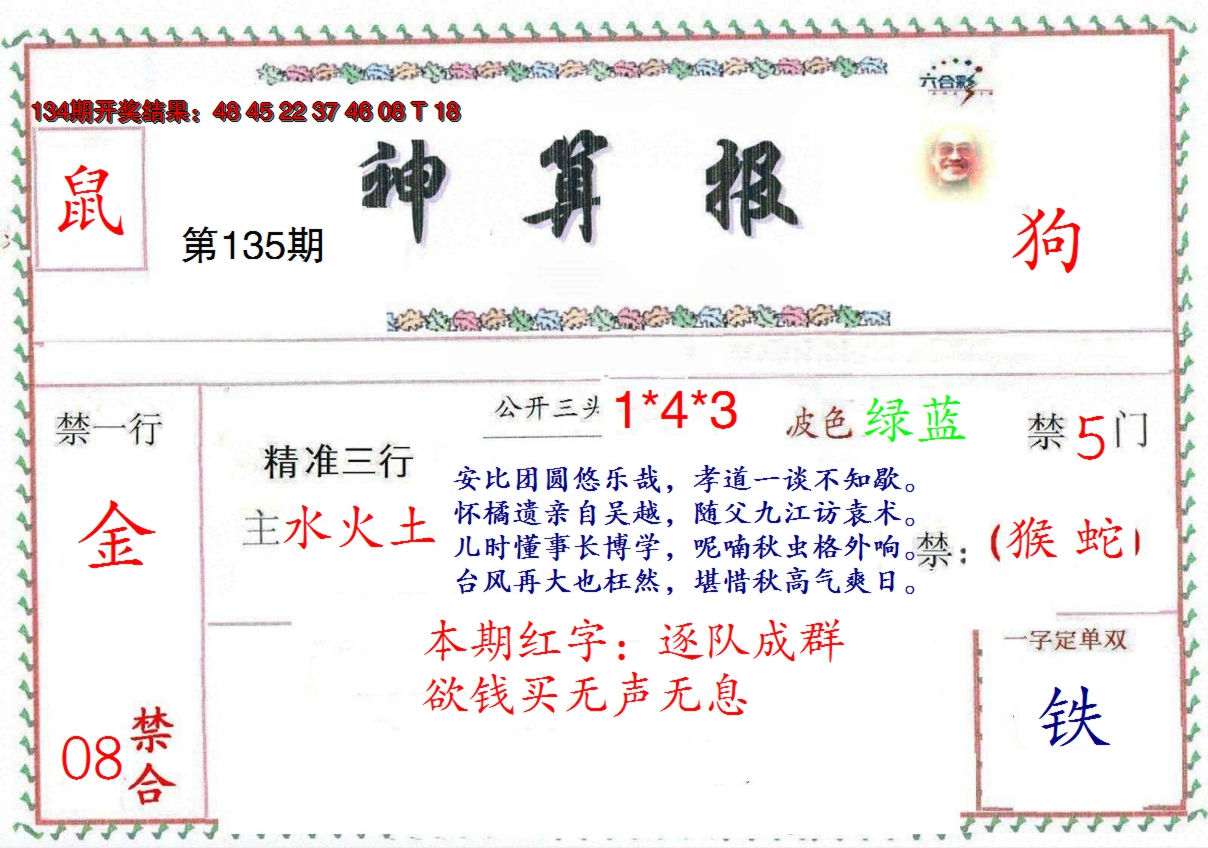 六合彩
134期开奖结果：48 45 22 37 46 08 T 18
鼠
神算报
第135期
狗
禁一行
金
08
禁合
公开三头 1*4*3
波色 绿蓝
禁5门
精准三行
主水火土
安比团圆悠乐哉，孝道一谈不知歇。
怀橘遗亲自吴越，随父九江访袁术。
儿时懂事长博学，呢喃秋虫格外响。
台风再大也枉然，堪惜秋高气爽日。
禁：（猴 蛇）
本期红字：逐队成群
欲钱买无声无息
一字定单双
铁